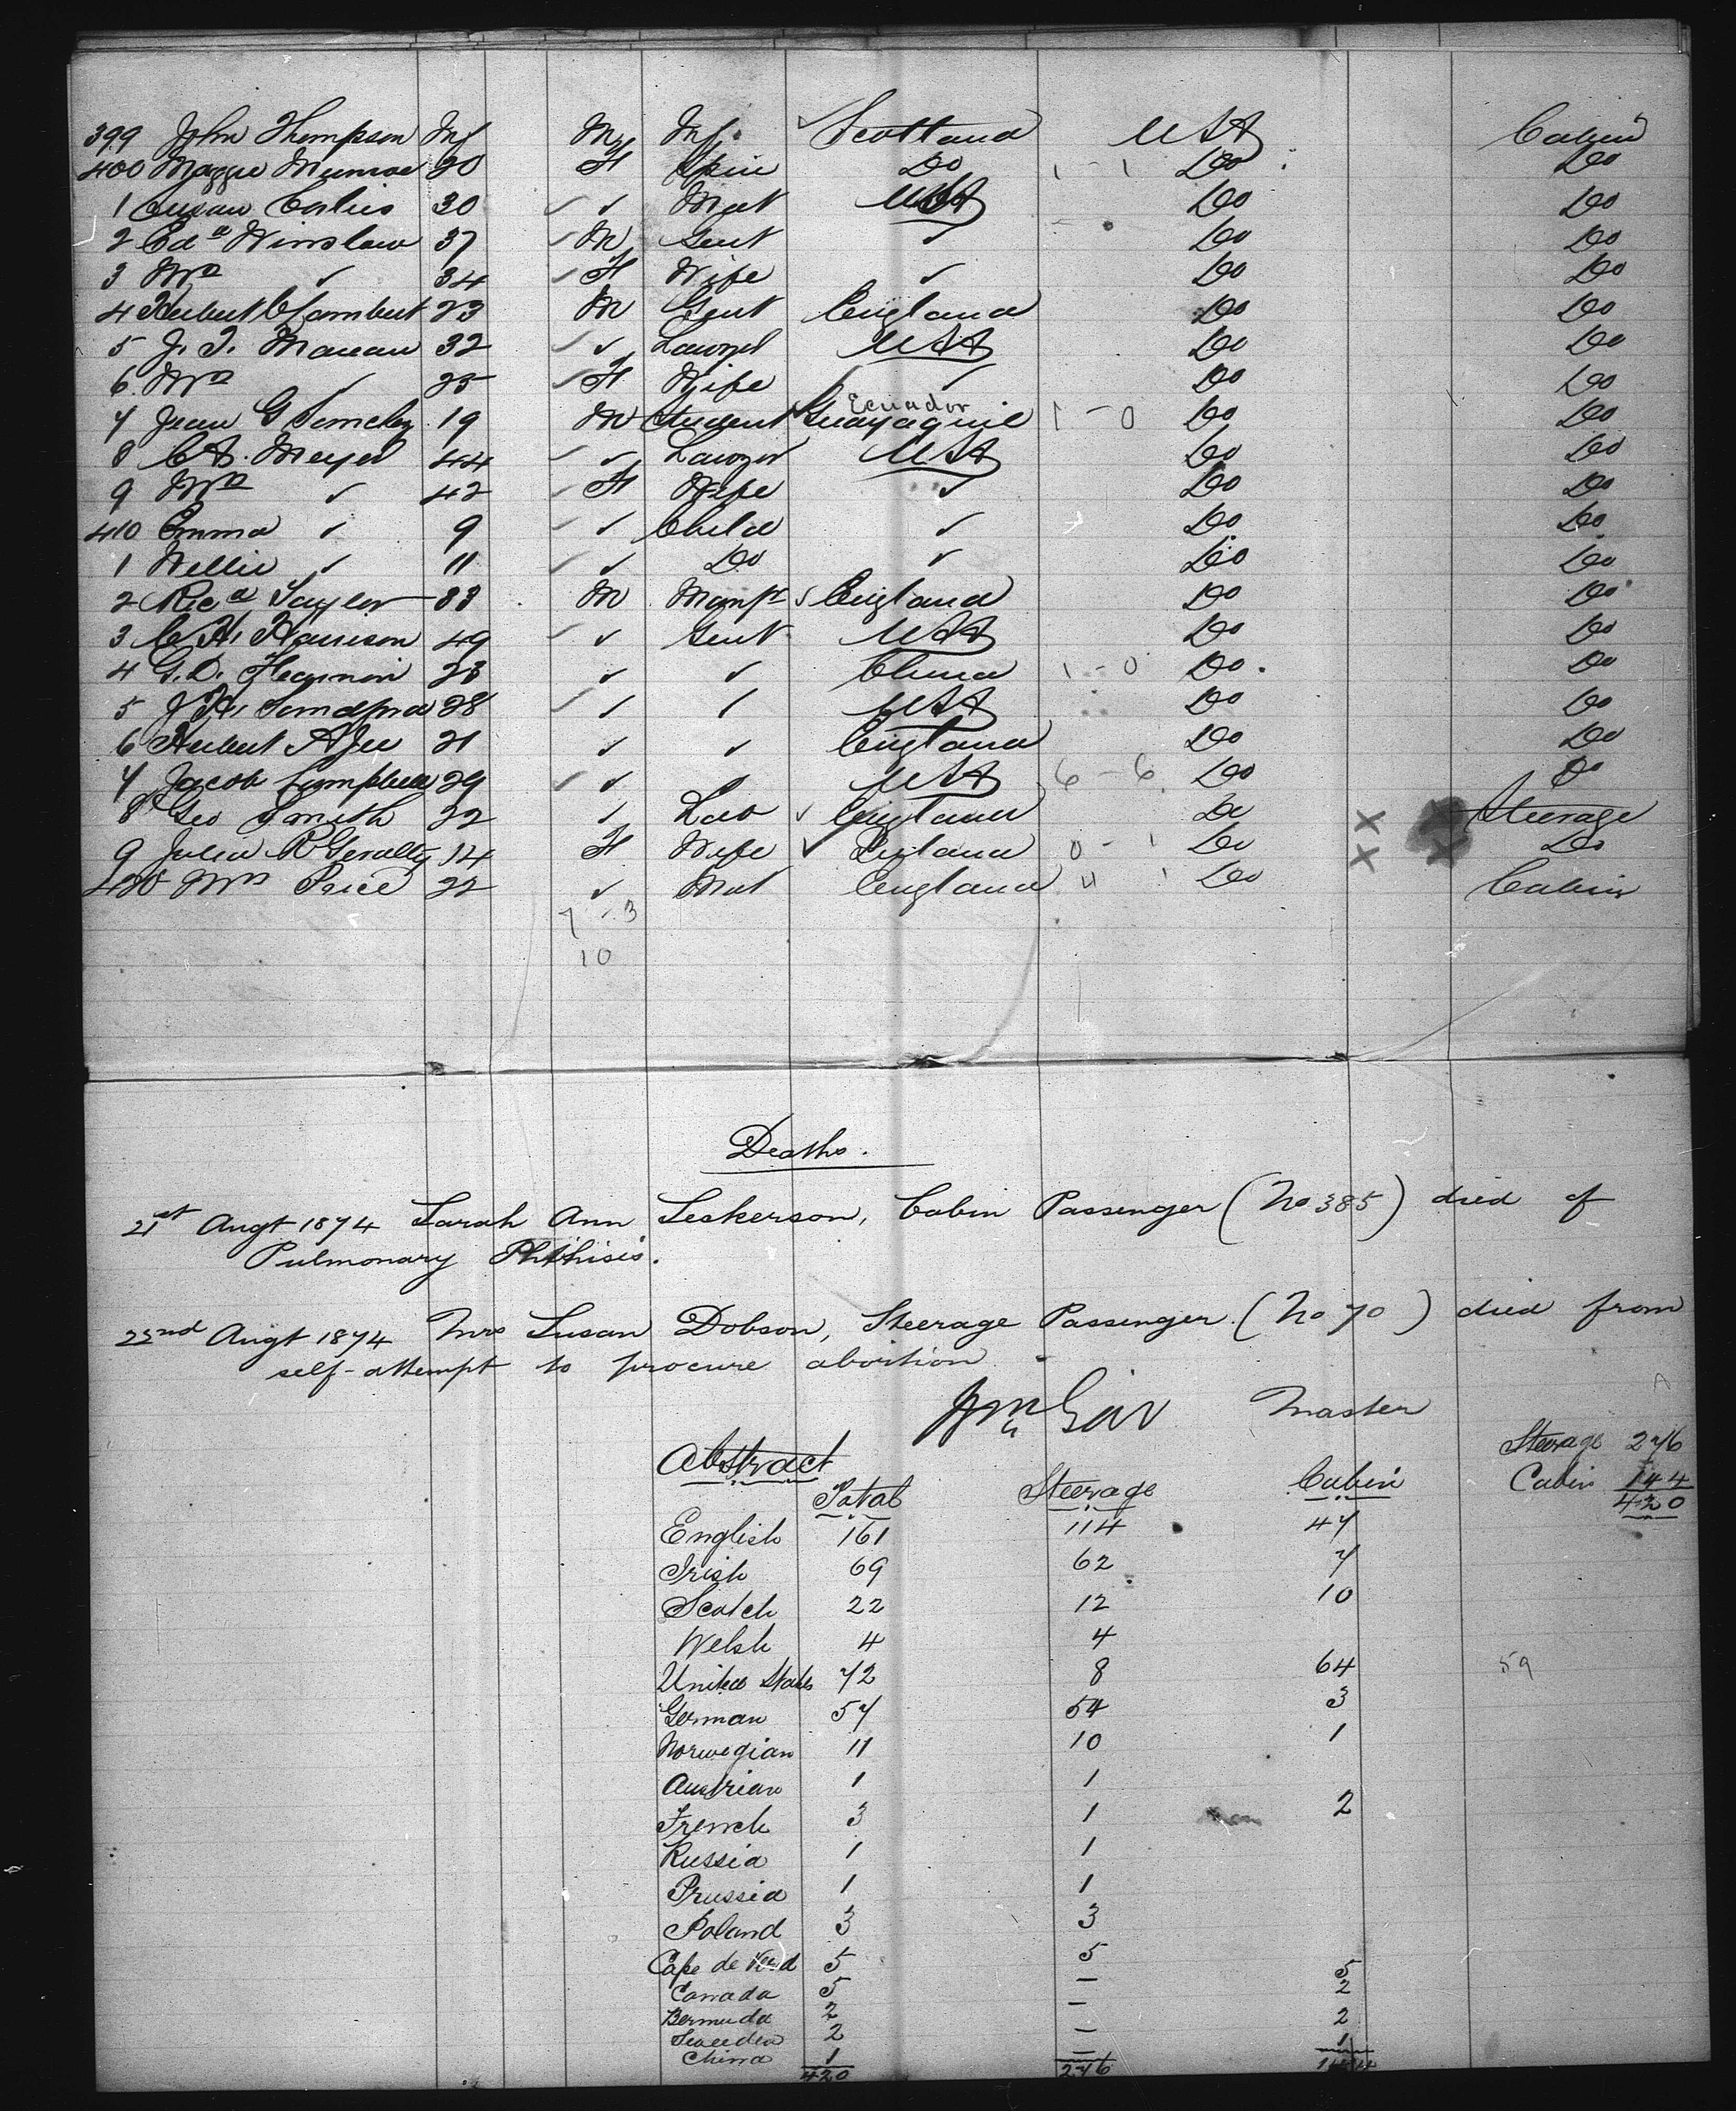 399 John Thompson Inf M Inf ✓ Scotland USA Cabin
400 Maggie Munroe 20 F Spin Do 1 1 Do Do
1 Susan Corlies 30 ✓ ✓ Mat USA Do Do
2 Edd Winslow 37 ✓ M Gent ✓ Do Do
3 Mrs ✓ 34 ✓ F Wife ✓ Do Do
4 Herbert C Lambert 23 M Gent England Do Do
5 J. T. 32 ✓ ✓ Lawyer USA Do Do
6 Mrs ✓ 25 ✓ F Wife ✓ Do Do
Ecuador
7 Juan G 19 M Student ✓ Guayaquil 1 - 0 Do Do
8 Meyer 44 ✓ ✓ Lawyer USA Do Do
9 Mrs ✓ 42 ✓ F Wife ✓ Do Do
410 Emma ✓ 9 ✓ ✓ Child ✓ Do Do
1 Willie ✓ 11 ✓ ✓ Do ✓ Do Do
2 Ricd Taylor 33 M Manfr ✓ England Do Do
3 C. H. Harrison 49 ✓ ✓ Gent USA Do Do
4 G. D. 28 ✓ ✓ China 1 - 0 Do Do
5 J. H. Sandford 28 ✓ ✓ ✓ USA Do Do
6 Herbert 21 ✓ ✓ England Do Do
7 Jacob Campbell 29 ✓ ✓ ✓ USA 6 - 6 Do Do
8 Geo Smith 22 ✓ Lab ✓ England Do X Steerage
9 Julia 14 F Wife ✓ England 0 - 1 Do X X Do
420 Mrs Price 22 ✓ Mat England 4 1 Do Cabin
7 - 3
10
Deaths.
21st Augt 1874 Sarah Ann Leskerson, Cabin Passenger (No 385) died of
Pulmonary Phthisis.
22nd Augt 1874 Mrs Susan Dobson, Steerage Passenger (No 70) died from
self-attempt to procure abortion
Master
Steerage 276
Cabin 144
420
Abstract
Total Steerage Cabin
English 161 114 47
Irish 69 62 7
Scotch 22 12 10
Welsh 4 4
United States 72 8 64 59
German 57 54 3
Norwegian 11 10 1
Austrian 1 1
French 3 1 2
Russia 1 1
Prussia 1 1
Poland 3 3
Cape de Verd 5 5
Canada 5 — 5
Bermuda 2 — 2
2 — 2
China 1 — 1
420 276 144